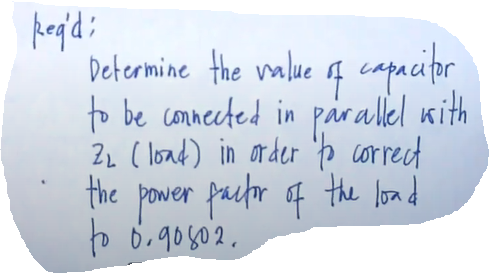 Req'd:
Determine the value of capacitor
to be connected in parallel with
ZL (load) in order to correct
the power factor of the load
to 0.90802.